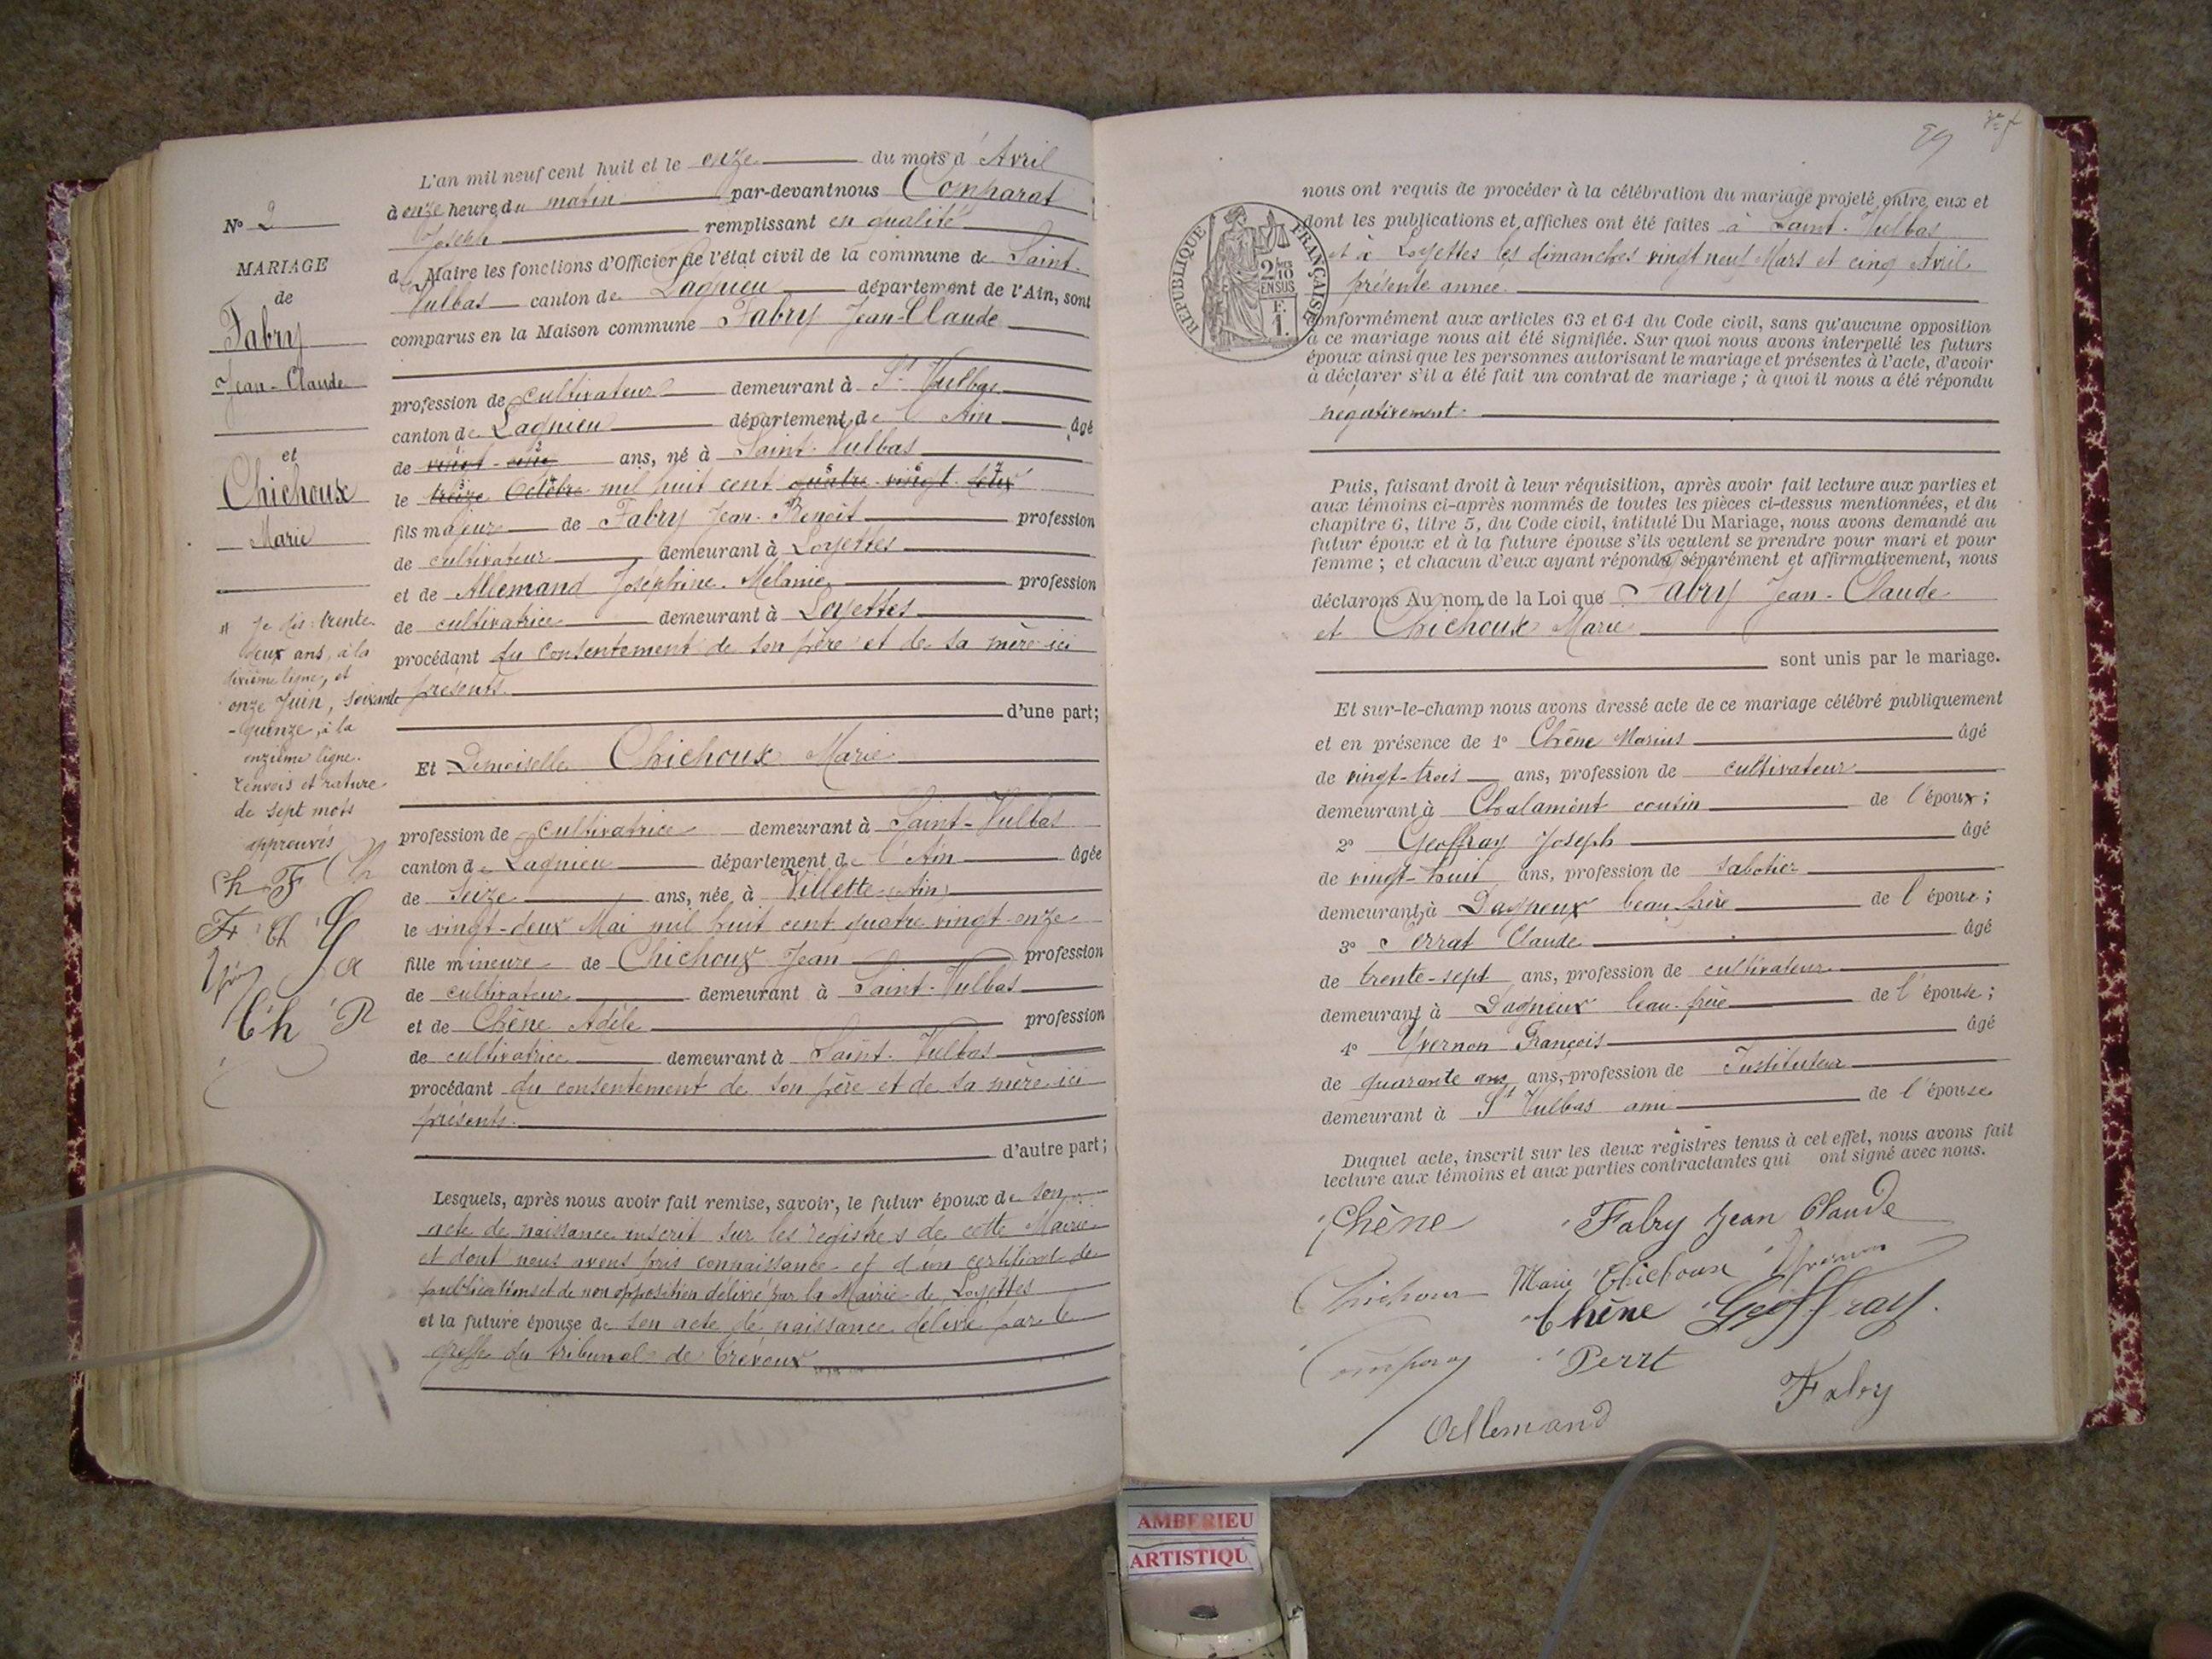 L'an mil neuf cent huit et le onze du mois d' Avril
à onze heure du matin par-devant nous Comparat
Joseph remplissant en qualité
de Maire les fonctions d'Officier de l'état civil de la commune de Saint-
Vulbas canton de Lagnieu département de l'Ain, sont
comparus en la Maison commune Fabry Jean-Claude
profession de cultivateur demeurant à St Vulbas
canton de Lagnieu département de l'Ain âgé
de vingt-cinq ans, né à Saint-Vulbas
le treize Octobre mil huit cent quatre vingt deux
fils majeur de Fabry Jean-Benoît profession
de cultivateur demeurant à Loyettes
et de Allemand Joséphine Mélanie profession
de cultivatrice demeurant à Loyettes
procédant du consentement de son père et de sa mère ici
présents.
d'une part;
Et Demoiselle Chichoux Marie
profession de cultivatrice demeurant à Saint-Vulbas
canton de Lagnieu département de l'Ain âgée
de seize ans, née à Villette (Ain)
le vingt-deux Mai mil huit cent quatre vingt onze
fille mineure de Chichoux Jean profession
de cultivateur demeurant à Saint-Vulbas
et de Chêne Adèle profession
de cultivatrice demeurant à Saint-Vulbas
procédant du consentement de son père et de sa mère ici
présents.
d'autre part;
Lesquels, après nous avoir fait remise, savoir, le futur époux de son
acte de naissance inscrit sur les registres de cette Mairie
et dont nous avons pris connaissance et d'un certificat de
publications et de non opposition délivré par la Mairie de Loyettes
et la future épouse de son acte de naissance délivré par le
greffe du tribunal de Trévoux
N° 2
MARIAGE
de
Fabry
Jean-Claude
et
Chichoux
Marie
Je dis: trente
deux ans, à la
dixième ligne, et
onze Juin, soixante
-quinze, à la
onzième ligne.
renvois et rature
de sept mots
approuvés
Ch F Ch
F Ch G
Ch P
29
nous ont requis de procéder à la célébration du mariage projeté entre eux et
dont les publications et affiches ont été faites à Saint-Vulbas
et à Loyettes les dimanches vingt neuf Mars et cinq Avril
présente année.
conformément aux articles 63 et 64 du Code civil, sans qu'aucune opposition
à ce mariage nous ait été signifiée. Sur quoi nous avons interpellé les futurs
époux ainsi que les personnes autorisant le mariage et présentes à l'acte, d'avoir
à déclarer s'il a été fait un contrat de mariage; à quoi il nous a été répondu
négativement.
REPUBLIQUE FRANÇAISE
2/10
EN SUS
F.
1.
Puis, faisant droit à leur réquisition, après avoir fait lecture aux parties et
aux témoins ci-après nommés de toutes les pièces ci-dessus mentionnées, et du
chapitre 6, titre 5, du Code civil, intitulé Du Mariage, nous avons demandé au
futur époux et à la future épouse s'ils veulent se prendre pour mari et pour
femme; et chacun d'eux ayant répondu séparément et affirmativement, nous
déclarons Au nom de la Loi que Fabry Jean-Claude
et Chichoux Marie
sont unis par le mariage.
Et sur-le-champ nous avons dressé acte de ce mariage célébré publiquement
et en présence de 1° Chêne Marius âgé
de vingt-trois ans, profession de cultivateur
demeurant à Chalamont cousin de l'époux;
2° Geoffray Joseph âgé
de vingt-huit ans, profession de sabotier
demeurant à Dagneux beau frère de l'époux;
3° Perrat Claude âgé
de trente-sept ans, profession de cultivateur
demeurant à Dagneux beau-frère de l'épouse;
4° Yvernon François âgé
de quarante ans ans, profession de Instituteur
demeurant à St Vulbas ami de l'épouse
Duquel acte, inscrit sur les deux registres tenus à cet effet, nous avons fait
lecture aux témoins et aux parties contractantes qui ont signé avec nous.
Chêne Fabry Jean Claude
Chichoux Marie Chichoux Yvernon
Chêne Geoffray.
Comparat Perrt
Fabry
Allemand
AMBERIEU
ARTISTIQU